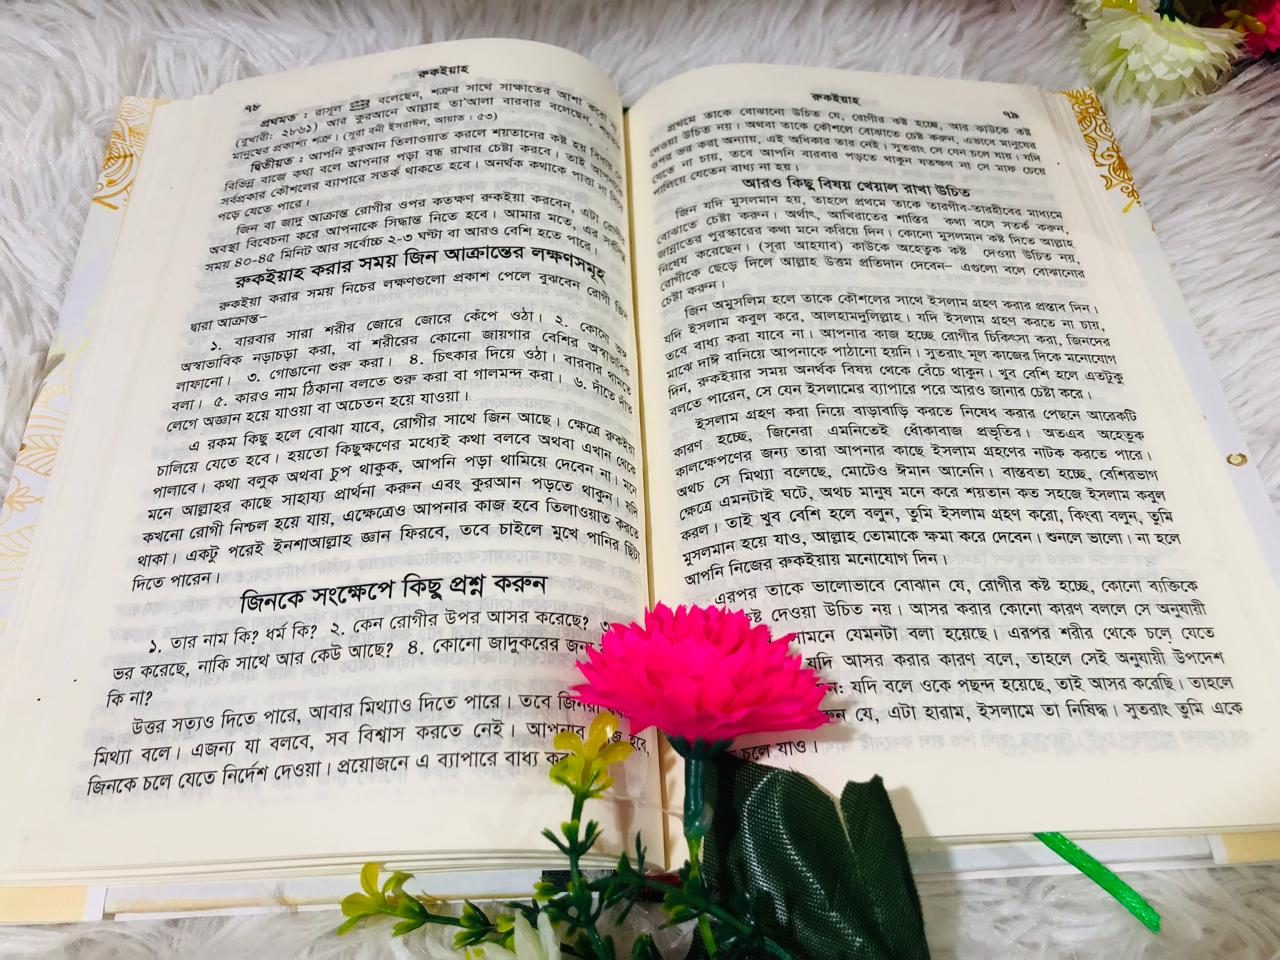 রুকইয়াহ
৭৮
প্রথমত : রাসূল ﷺ বলেছেন, শত্রুর সাথে সাক্ষাতের আশা করো
(বুখারী: ২৮৬১) আর কুরআনে আল্লাহ তা'আলা বারবার বলেছেন,
মানুষের প্রকাশ্য শত্রু। (সূরা বনী ইসরাঈল, আয়াত : ৫৩)
দ্বিতীয়ত : আপনি কুরআন তিলাওয়াত করলে শয়তানের কষ্ট হয়
বিভিন্ন বাজে কথা বলে আপনার পড়া বন্ধ রাখার চেষ্টা করবে। তাই
সর্বপ্রকার কৌশলের ব্যাপারে সতর্ক থাকতে হবে। অনর্থক কথাকে পাত্তা না দিয়ে
পড়ে যেতে পারে।
জিন বা জাদু আক্রান্ত রোগীর ওপর কতক্ষণ রুকইয়া করবেন, এটা রোগীর
অবস্থা বিবেচনা করে আপনাকে সিদ্ধান্ত নিতে হবে। আমার মতে, এর
সময় ৪০-৪৫ মিনিট আর সর্বোচ্চ ২-৩ ঘণ্টা বা আরও বেশি হতে পারে।
রুকইয়াহ করার সময় জিন আক্রান্তের লক্ষণসমূহ
রুকইয়া করার সময় নিচের লক্ষণগুলো প্রকাশ পেলে বুঝবেন রোগী জিন
দ্বারা আক্রান্ত–
১. বারবার সারা শরীর জোরে জোরে কেঁপে ওঠা। ২. কোনো অঙ্গ
অস্বাভাবিক নড়াচড়া করা, বা শরীরের কোনো জায়গার বেশির অস্বাভাবিক
লাফানো। ৩. গোঙানো শুরু করা। ৪. চিৎকার দিয়ে ওঠা। বারবার থামতে
বলা। ৫. কারও নাম ঠিকানা বলতে শুরু করা বা গালমন্দ করা। ৬. দাঁতে দাঁত
লেগে অজ্ঞান হয়ে যাওয়া বা অচেতন হয়ে যাওয়া।
এ রকম কিছু হলে বোঝা যাবে, রোগীর সাথে জিন আছে। ক্ষেত্রে রুকইয়া
চালিয়ে যেতে হবে। হয়তো কিছুক্ষণের মধ্যেই কথা বলবে অথবা এখান থেকে
পালাবে। কথা বলুক অথবা চুপ থাকুক, আপনি পড়া থামিয়ে দেবেন না। মনে
মনে আল্লাহর কাছে সাহায্য প্রার্থনা করুন এবং কুরআন পড়তে থাকুন। যদি
কখনো রোগী নিশ্চল হয়ে যায়, এক্ষেত্রেও আপনার কাজ হবে তিলাওয়াত করতে
থাকা। একটু পরেই ইনশাআল্লাহ জ্ঞান ফিরবে, তবে চাইলে মুখে পানির ছিটা
দিতে পারেন।
জিনকে সংক্ষেপে কিছু প্রশ্ন করুন
১. তার নাম কি? ধর্ম কি? ২. কেন রোগীর উপর আসর করেছে? ৩.
ভর করেছে, নাকি সাথে আর কেউ আছে? ৪. কোনো জাদুকরের জন্য
কি না?
উত্তর সত্যও দিতে পারে, আবার মিথ্যাও দিতে পারে। তবে জিনরা
মিথ্যা বলে। এজন্য যা বলবে, সব বিশ্বাস করতে নেই। আপনার কাজ হবে,
জিনকে চলে যেতে নির্দেশ দেওয়া। প্রয়োজনে এ ব্যাপারে বাধ্য
রুকইয়াহ
৭৯
প্রথমে তাকে বোঝানো উচিত যে, রোগীর কষ্ট হচ্ছে, আর কাউকে কষ্ট
দেওয়া উচিত নয়। অথবা তাকে কৌশলে বোঝাতে চেষ্ট করুন, এভাবে মানুষের
ওপর ভর করা অন্যায়, এই অধিকার তার নেই। সুতরাং সে যেন চলে যায়। যদি
যেতে না চায়, তবে আপনি বারবার পড়তে থাকুন যতক্ষণ না সে মাফ চেয়ে
পালিয়ে যেতেন বাধ্য না হয়।
আরও কিছু বিষয় খেয়াল রাখা উচিত
জিন যদি মুসলমান হয়, তাহলে প্রথমে তাকে তারগীব-তারহীবের মাধ্যমে
বোঝাতে চেষ্টা করুন। অর্থাৎ, আখিরাতের শাস্তির কথা বলে সতর্ক করুন,
জান্নাতের পুরস্কারের কথা মনে করিয়ে দিন। কোনো মুসলমান কষ্ট দিতে আল্লাহ
নিষেধ করেছেন। (সূরা আহযাব) কাউকে অহেতুক কষ্ট দেওয়া উচিত নয়,
রোগীকে ছেড়ে দিলে আল্লাহ উত্তম প্রতিদান দেবেন– এগুলো বলে বোঝানোর
চেষ্টা করুন।
জিন অমুসলিম হলে তাকে কৌশলের সাথে ইসলাম গ্রহণ করার প্রস্তাব দিন।
যদি ইসলাম কবুল করে, আলহামদুলিল্লাহ। যদি ইসলাম গ্রহণ করতে না চায়,
তবে বাধ্য করা যাবে না। আপনার কাজ হচ্ছে রোগীর চিকিৎসা করা, জিনদের
মাঝে দাঈ বানিয়ে আপনাকে পাঠানো হয়নি। সুতরাং মূল কাজের দিকে মনোযোগ
দিন, রুকইয়ার সময় অনর্থক বিষয় থেকে বেঁচে থাকুন। খুব বেশি হলে এতটুকু
বলতে পারেন, সে যেন ইসলামের ব্যাপারে পরে আরও জানার চেষ্টা করে।
ইসলাম গ্রহণ করা নিয়ে বাড়াবাড়ি করতে নিষেধ করার পেছনে আরেকটি
কারণ হচ্ছে, জিনেরা এমনিতেই ধোঁকাবাজ প্রভৃতির। অতএব অহেতুক
কালক্ষেপণের জন্য তারা আপনার কাছে ইসলাম গ্রহণের নাটক করতে পারে।
অথচ সে মিথ্যা বলেছে, মোটেও ঈমান আনেনি। বাস্তবতা হচ্ছে, বেশিরভাগ
ক্ষেত্রে এমনটাই ঘটে, অথচ মানুষ মনে করে শয়তান কত সহজে ইসলাম কবুল
করল। তাই খুব বেশি হলে বলুন, তুমি ইসলাম গ্রহণ করো, কিংবা বলুন, তুমি
মুসলমান হয়ে যাও, আল্লাহ তোমাকে ক্ষমা করে দেবেন। শুনলে ভালো। না হলে
আপনি নিজের রুকইয়ায় মনোযোগ দিন।
এরপর তাকে ভালোভাবে বোঝান যে, রোগীর কষ্ট হচ্ছে, কোনো ব্যক্তিকে
কষ্ট দেওয়া উচিত নয়। আসর করার কোনো কারণ বললে সে অনুযায়ী
সামনে যেমনটা বলা হয়েছে। এরপর শরীর থেকে চলে যেতে
যদি আসর করার কারণ বলে, তাহলে সেই অনুযায়ী উপদেশ
যদি বলে ওকে পছন্দ হয়েছে, তাই আসর করেছি। তাহলে
যে, এটা হারাম, ইসলামে তা নিষিদ্ধ। সুতরাং তুমি একে
চলে যাও।